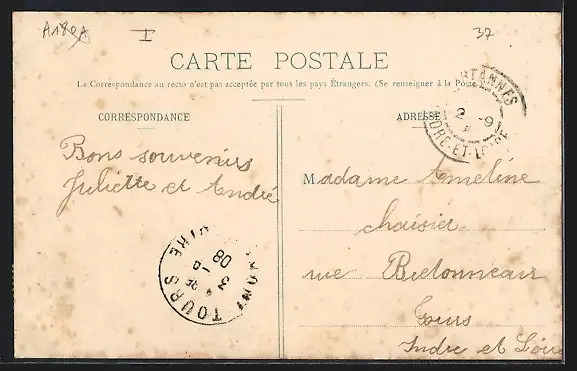 A189A I 37
CARTE POSTALE
La Correspondance au recto n'est pas acceptée par tous les pays Étrangers. (Se renseigner à la Poste)
CORRESPONDANCE
ADRESSE
ARTANNES
2 -9
INDRE-ET-LOIRE
Bons souvenirs
Juliette et André
Madame Ameline
rue Bretonneau
Tours
Indre et Loire
TOURS
3 -9
08